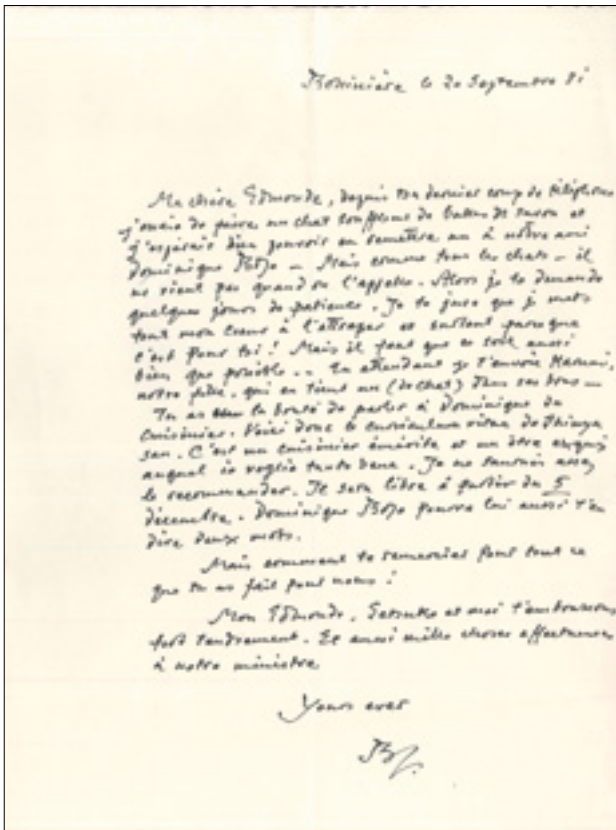 Rossinière le 20 Septembre 81
Ma chère Edmonde, depuis ton dernier coup de téléphone
j'essaie de faire un chat souffleur de bulles de savon et
j'espérais bien pouvoir en remettre un à notre ami
Dominique Bozo — Mais comme tous les chats — il
ne vient pas quand on l'appelle. Alors je te demande
quelques jours de patience. Je te jure que je mets
tout mon cœur à l'attraper et surtout parce que
c'est pour toi! Mais il faut que ce soit aussi
bien que possible.. En attendant je t'envoie Harumi,
notre fille, qui en tient un (de chat) dans ses bras —
Tu as la bonté de parler à Dominique du
cuisinier. Voici donc le curriculum vitae de
san. C'est un cuisinier émérite et un être exquis
auquel io voglio tanto bene. Je ne saurais assez
le recommander. Il sera libre à partir du 5
décembre. Dominique Bozo pourra lui aussi t'en
dire deux mots.
Mais comment te remercier pour tout ce
que tu as fait pour nous!
Mon Edmonde, Setsuko et moi t'embrassons
fort tendrement. Et aussi mille choses affectueuses
à notre ministre
Yours ever